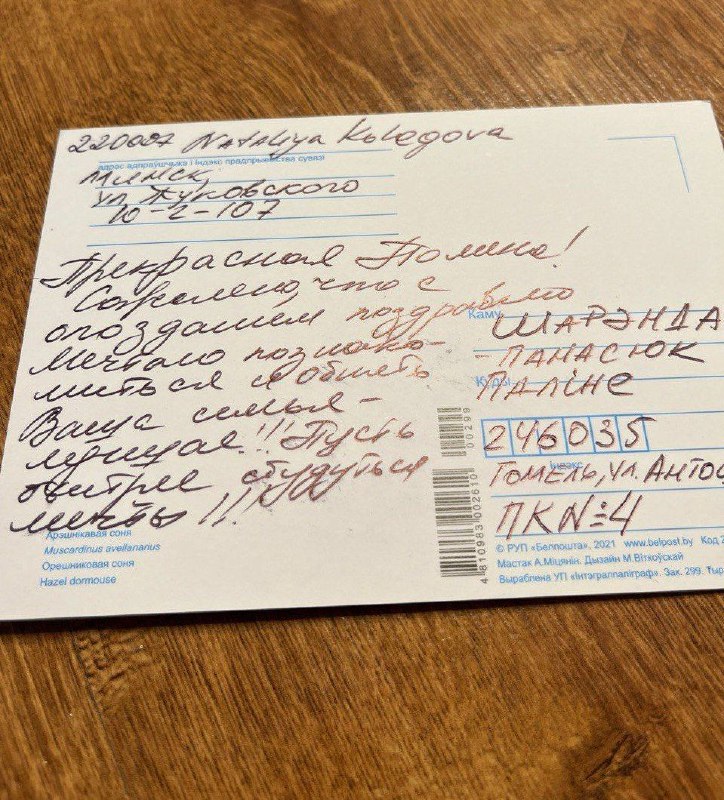 220007 Nataliya Kologova
адрас адпраўшчыка і індэкс прадпрыемства сувязі
Минск,
ул. Жуковского
10-2-107
Прекрасная Полина!
Сожалею, что с
опозданием поздравляю
Мечтаю познако-
миться и обнять
Ваша семья -
лучшая!!! Пусть
быстрее сбудуться
мечты!!!
Каму
ШАРЭНДА
- ПАНАСЮК
Куды
ПАЛІНЕ
246035
Індэкс
ГОМЕЛЬ, УЛ. АНТОШ
ПК №4
00299
4 810983 002610
Арэшнікавая соня
Muscardinus avellanarius
Орешниковая соня
Hazel dormouse
© РУП «Белпошта», 2021 www.belpost.by Код 2
Мастак А.Міцянін. Дызайн М.Віткоўскай
Выраблена УП «Інтэграпаліграф». Зак. 299. Тыр